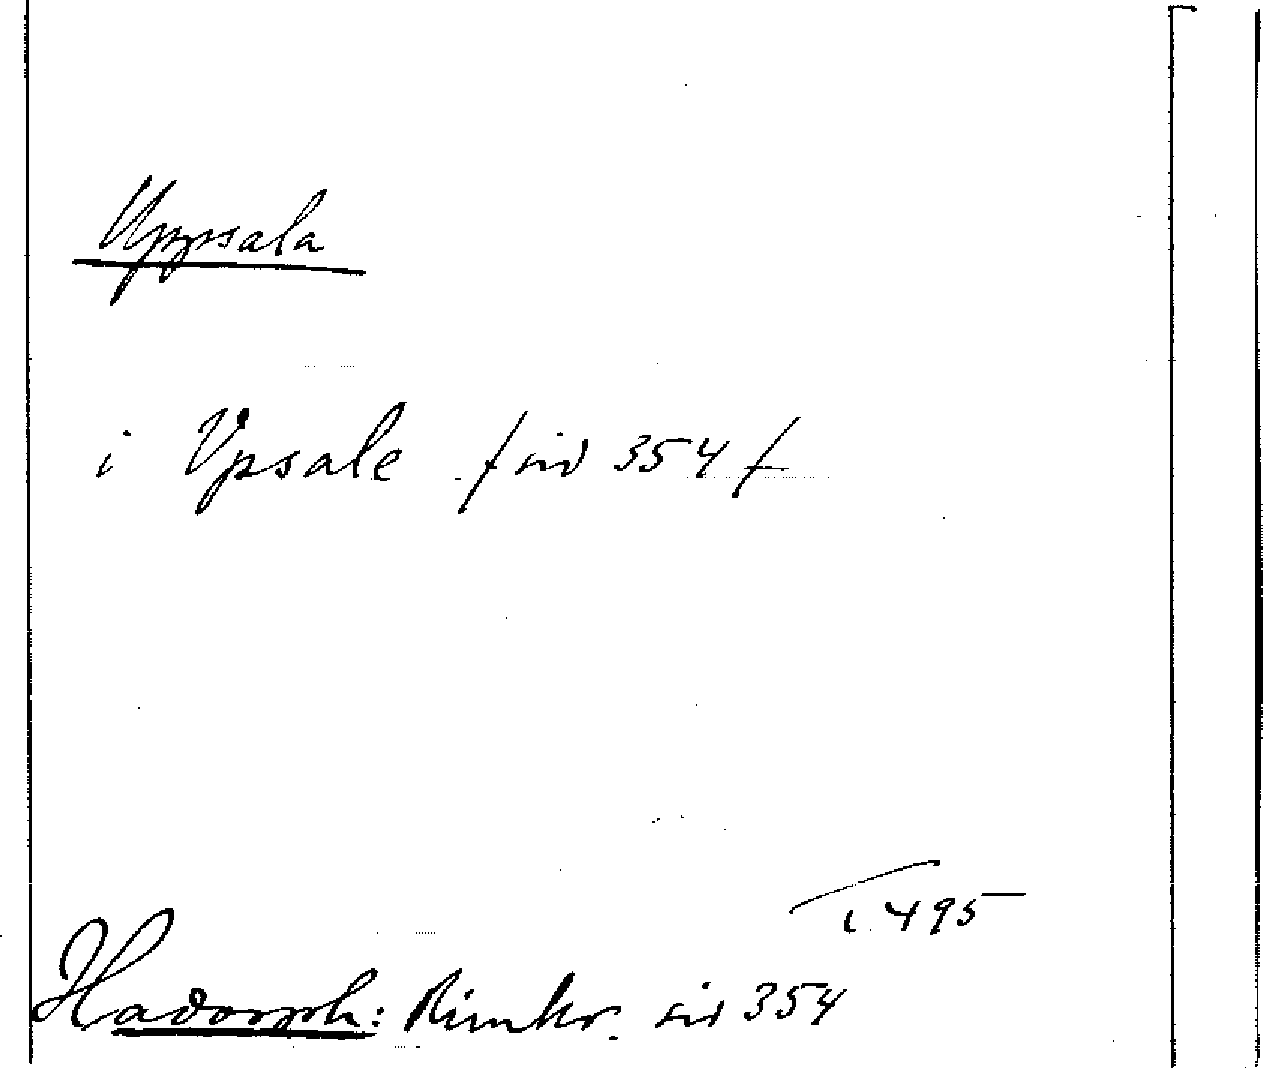 Uppsala
i Vpsale /sid 354/
i. 495
Hadorph: Rimkr. sid 354